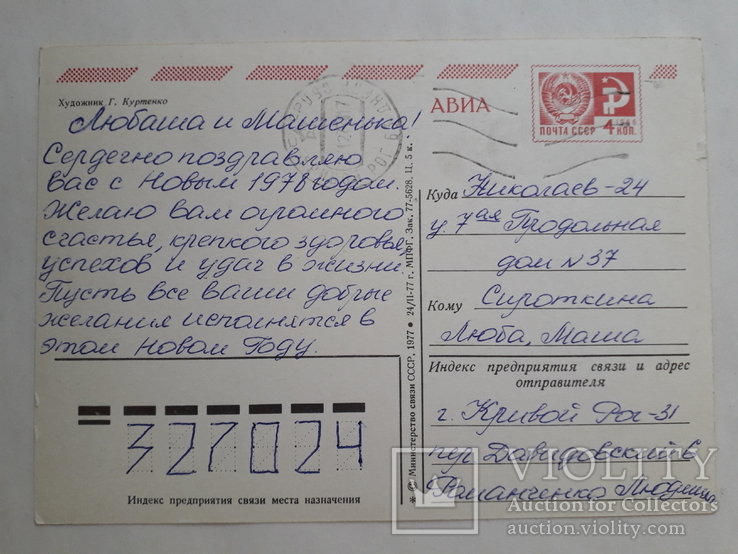 Художник Г. Куртенко
Любаша и Машенька!
Сердечно поздравляю
вас с Новым 1978 годом.
Желаю вам огромного
счастья, крепкого здоровья,
успехов и удач в жизни.
Пусть все ваши добрые
желания исполнятся в
этом Новом Году.
327024
Индекс предприятия связи места назначения
* © Министерство связи СССР, 1977 • 24/II-77 г. МПФГ. Зак. 77-5628. Ц. 5 к.
АВИА
ПОЧТА СССР 4 КОП.
1966
Куда Николаев-24
у. 7ая Продольная
дом N 37
Кому Сироткина
Люба, Маша
Индекс предприятия связи и адрес
отправителя
г. Кривой Рог-31
пер
Романченко Людмила
VIOLITY
Auction for Collectors
auction.violity.com